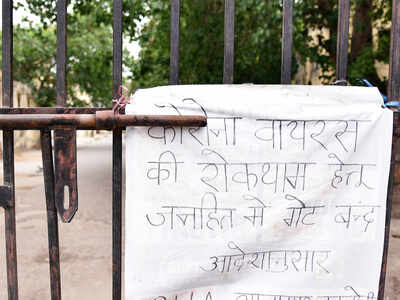 कोरोना वायरस
की रोकथाम हेतू
जनहित मे गेट बन्द
आदेशानुसार